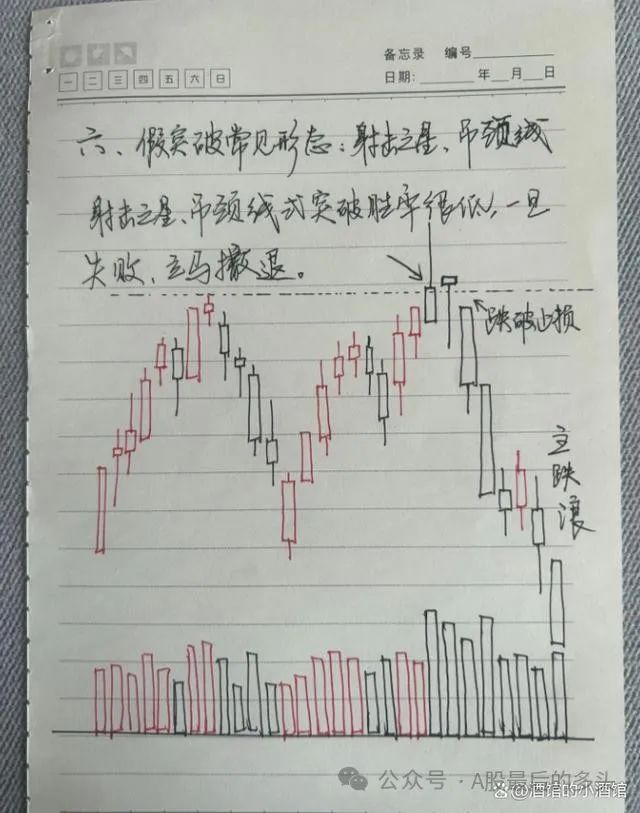 备忘录 编号
一 二 三 四 五 六 日
日期: 年 月 日
六、假突破常见形态：射击之星、吊颈线
射击之星、吊颈线式突破胜率很低，一旦
失败，立马撤退。
跌破止损
主跌浪
公众号 · A股最后的多头
@酒馆的小酒馆